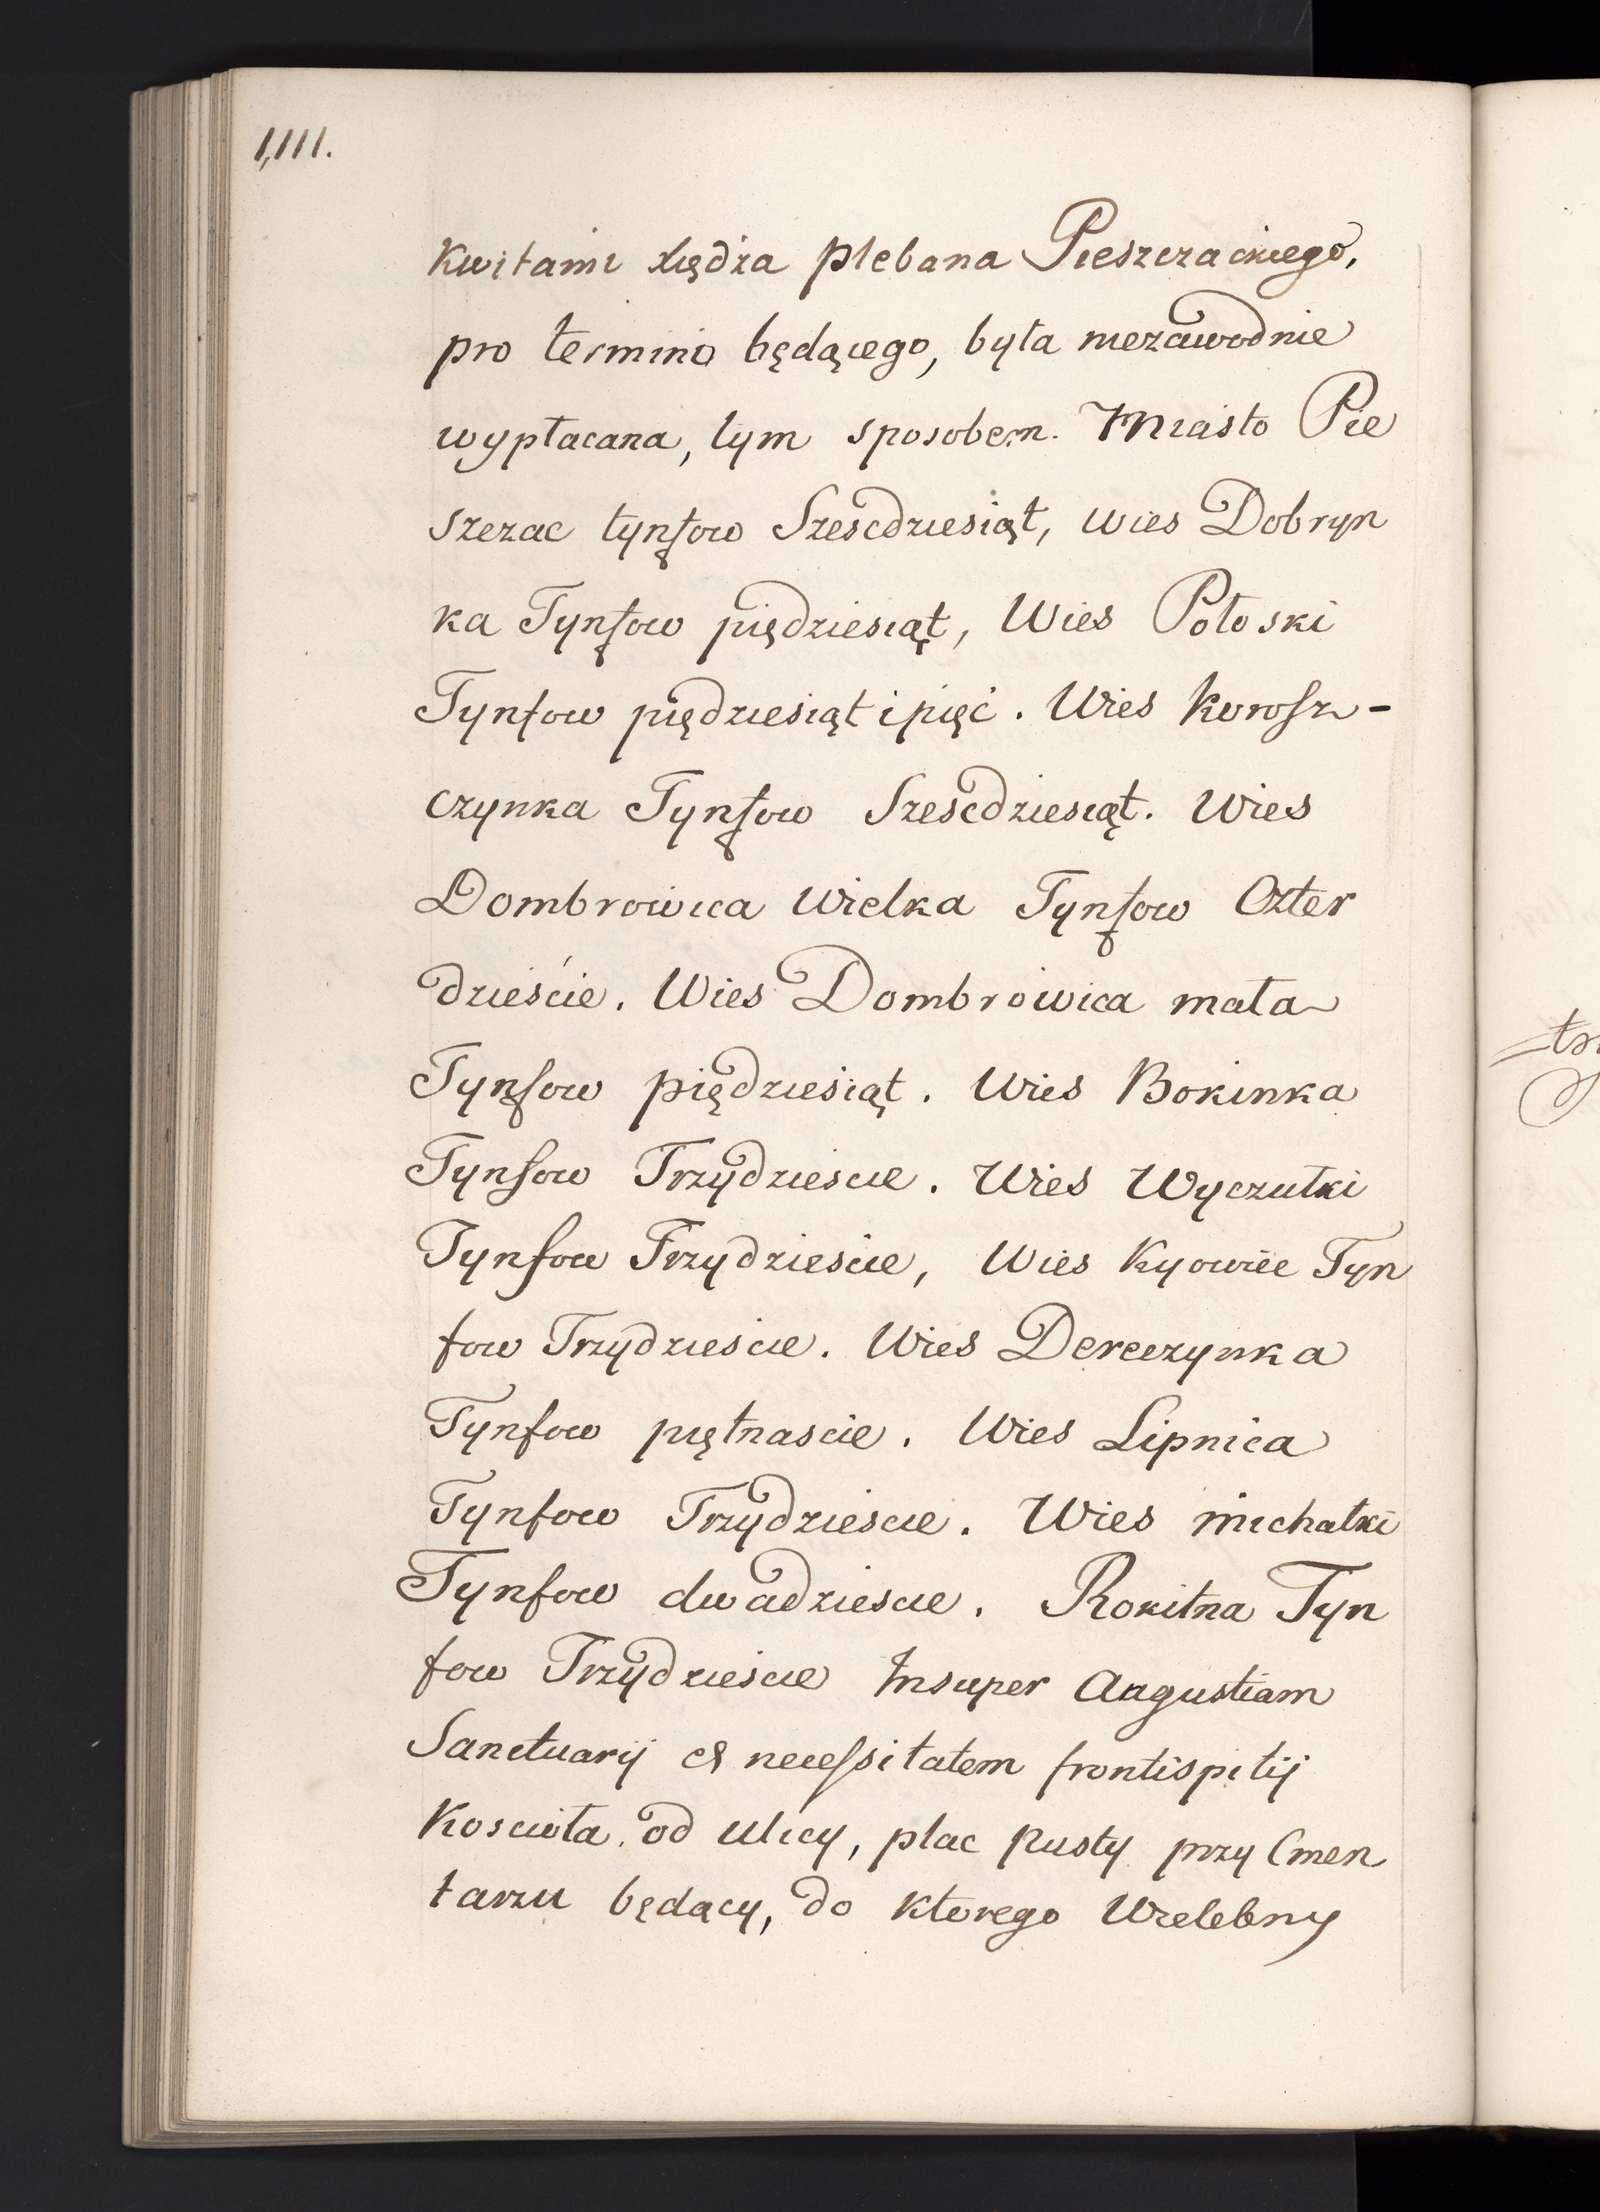 1,111.
Kwitami xiędza plebana Pieszczackiego,
pro termino będącego, była niezawodnie
wypłacana, tym sposobem. Miasto Pie
szczac tynfow Szescdziesiąt, Wies Dobryn
ka Tynfow piędziesiąt, Wies Połoski
Tynfow piędziesiąt i pięć. Wies Korosz-
czynka Tynfow Szescdziesiąt. Wies
Dombrowica Wielka Tynfow Czter
dzieście. Wies Dombrowica mała
Tynfow piędziesiąt. Wies Bokinka
Tynfow Trzydziescie. Wies Wyczułki
Tynfow Trzydziescie, Wies Kyowiec Tyn
fow Trzydziescie. Wies Dereczynka
Tynfow piętnascie. Wies Lipnica
Tynfow Trzydziescie. Wies michałki
Tynfow dwadziescie. Rokitna Tyn
fow Trzydziescie Insuper Angustiam
Sanctuarij et necessitatem frontispitij
Koscioła od Ulicy, plac pusty przy Cmen
tarzu będący, do ktorego Wielebny